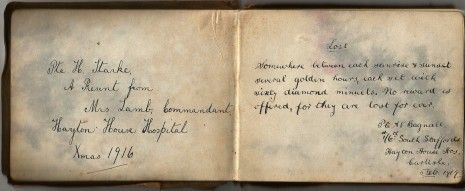 Pte H. Starke,
A Present from
Mrs Lamb, Commandant
Hayton House Hospital
Xmas 1916
Lost
Somewhere between each sunrise & sunset
several golden hours, each set with
sixty diamond minuets. No reward is
offered, for they are lost for ever.
Pte H Bagnall
2/6th South Staffords
Hayton House Hos.
Carlisle.
Feb. 1917